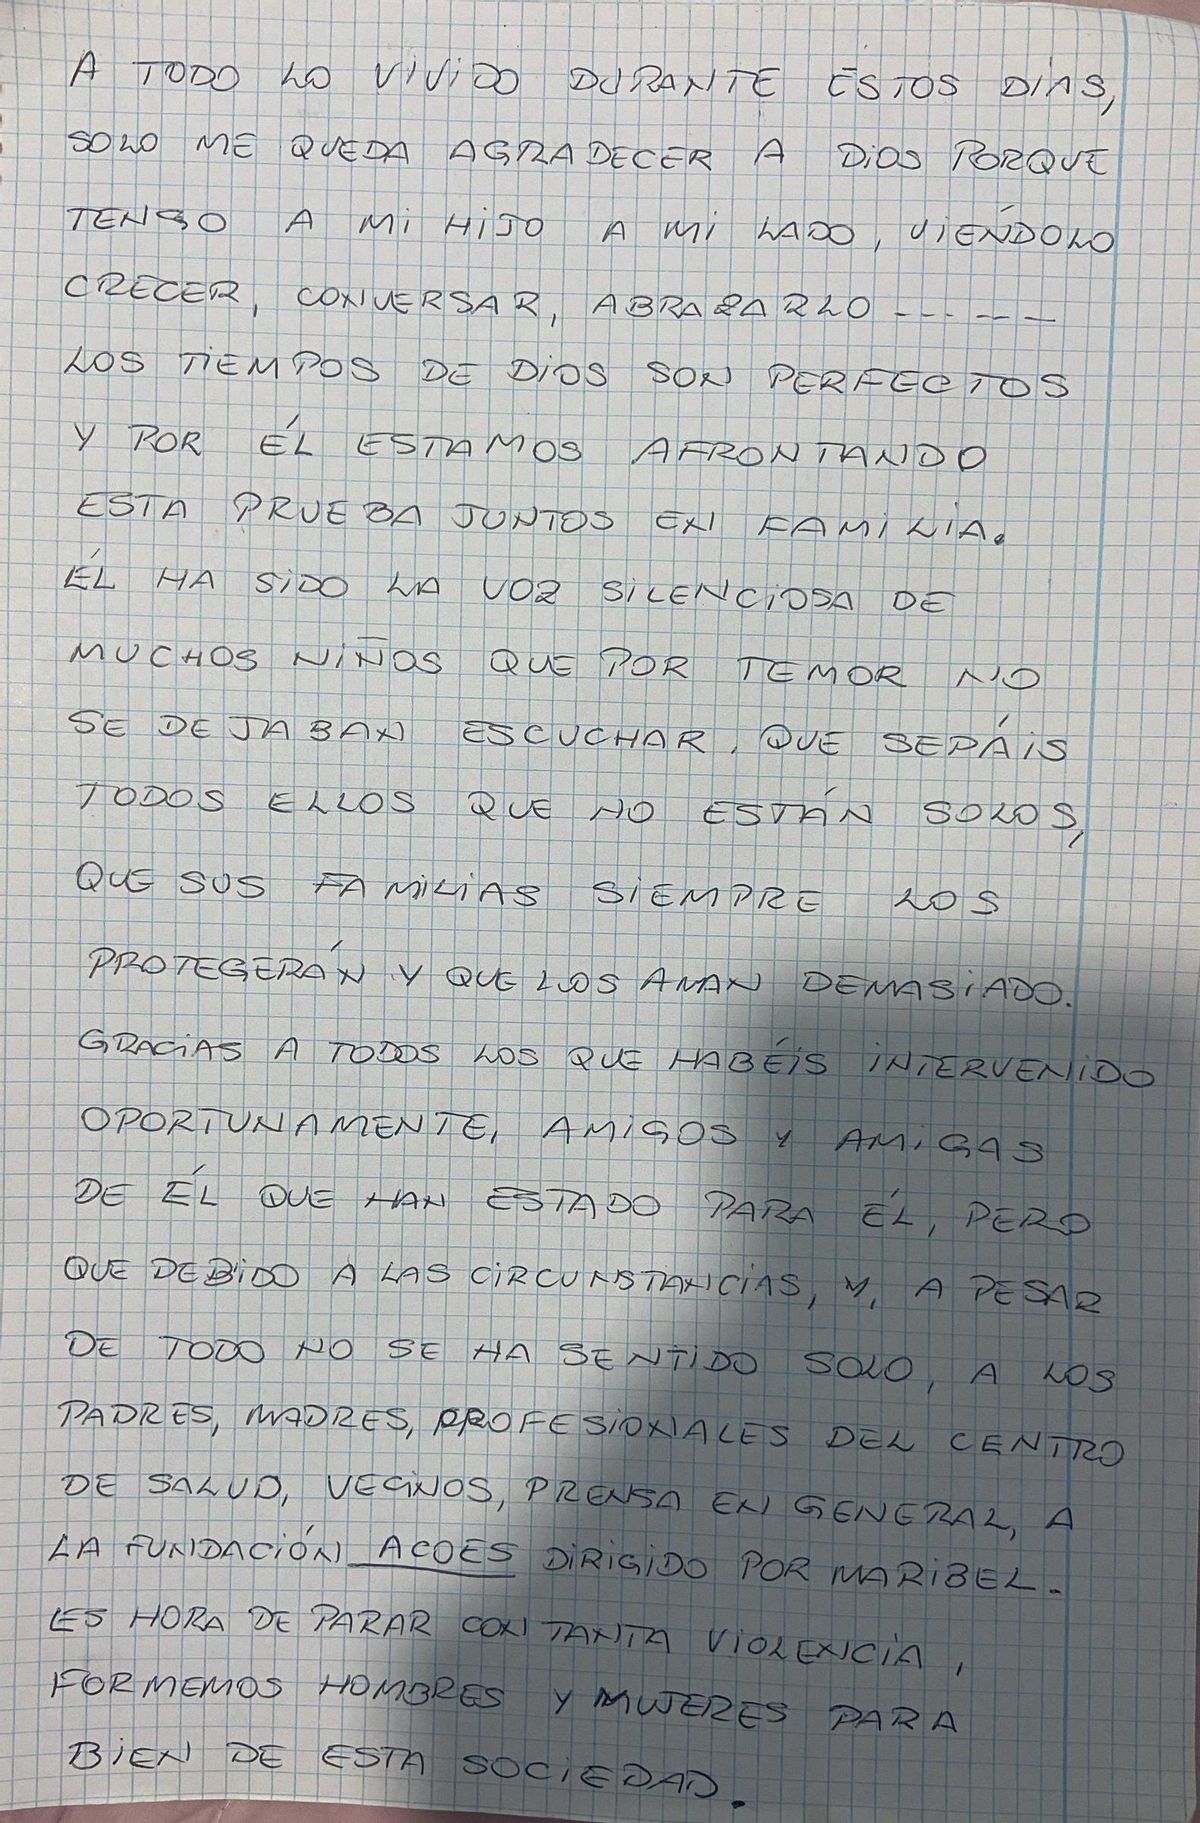 A TODO LO VIVIDO DURANTE ÉSTOS DÍAS,
SOLO ME QUEDA AGRADECER A DIOS PORQUE
TENGO A MI HIJO A MI LADO, VIÉNDOLO
CRECER, CONVERSAR, ABRAZARLO ------
LOS TIEMPOS DE DIOS SON PERFECTOS
Y POR ÉL ESTAMOS AFRONTANDO
ESTA PRUEBA JUNTOS EN FAMILIA.
ÉL HA SIDO LA VOZ SILENCIOSA DE
MUCHOS NIÑOS QUE POR TEMOR NO
SE DEJABAN ESCUCHAR, QUE SEPÁIS
TODOS ELLOS QUE NO ESTÁN SOLOS,
QUE SUS FAMILIAS SIEMPRE LOS
PROTEGERÁN Y QUE LOS AMAN DEMASIADO.
GRACIAS A TODOS LOS QUE HABÉIS INTERVENIDO
OPORTUNAMENTE, AMIGOS Y AMIGAS
DE ÉL QUE HAN ESTADO PARA ÉL, PERO
QUE DEBIDO A LAS CIRCUNSTANCIAS, Y, A PESAR
DE TODO NO SE HA SENTIDO SOLO, A LOS
PADRES, MADRES, PROFESIONALES DEL CENTRO
DE SALUD, VECINOS, PRENSA EN GENERAL, A
LA FUNDACIÓN ACOES DIRIGIDO POR MARIBEL.
ES HORA DE PARAR CON TANTA VIOLENCIA,
FORMEMOS HOMBRES Y MUJERES PARA
BIEN DE ESTA SOCIEDAD.